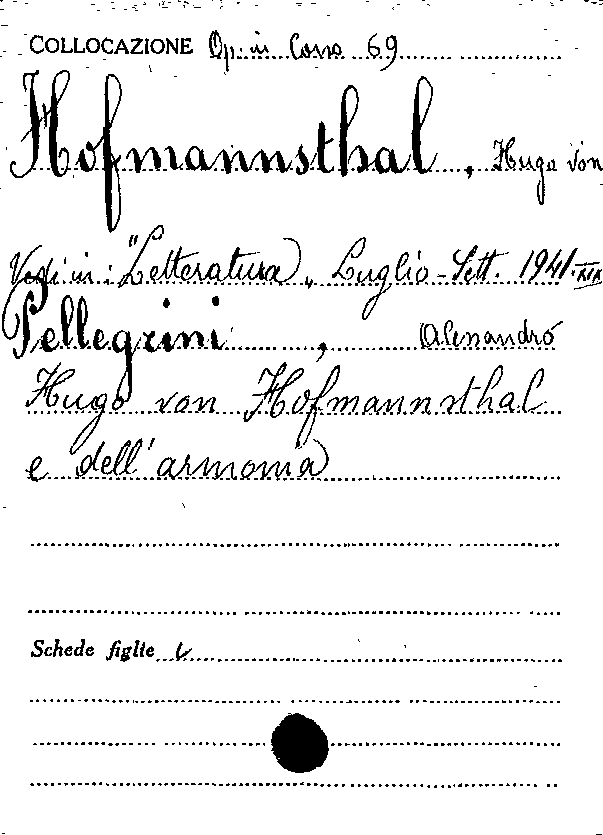 COLLOCAZIONE Op. in Corso 69
Hofmannsthal, Hugo von
Vedi in: "Letteratura", Luglio-Sett. 1941-XIX
Pellegrini, Alessandro
Hugo von Hofmannsthal
e dell'armonia
Schede figlie